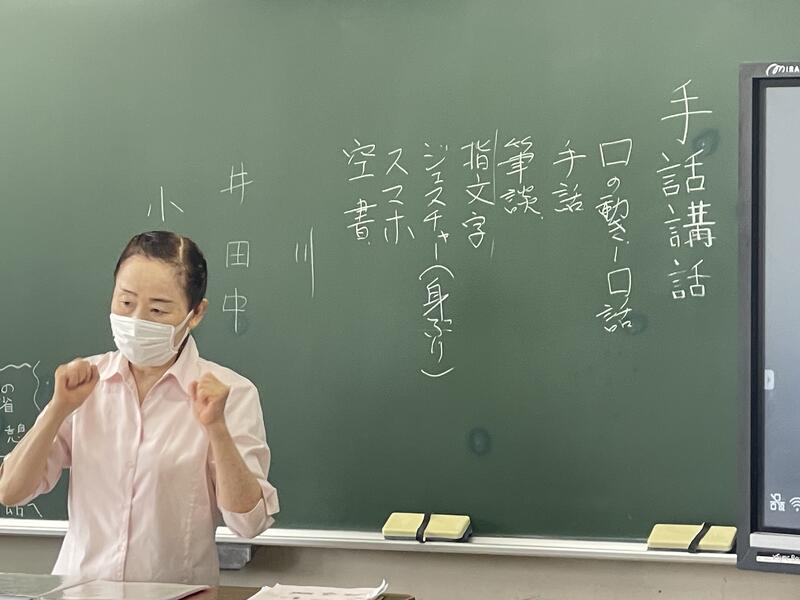 手話講話
口の動き・口話
手話
筆談
指文字
ジェスチャー(身ぶり)
スマホ
空書
川
井
田
中
小
の省